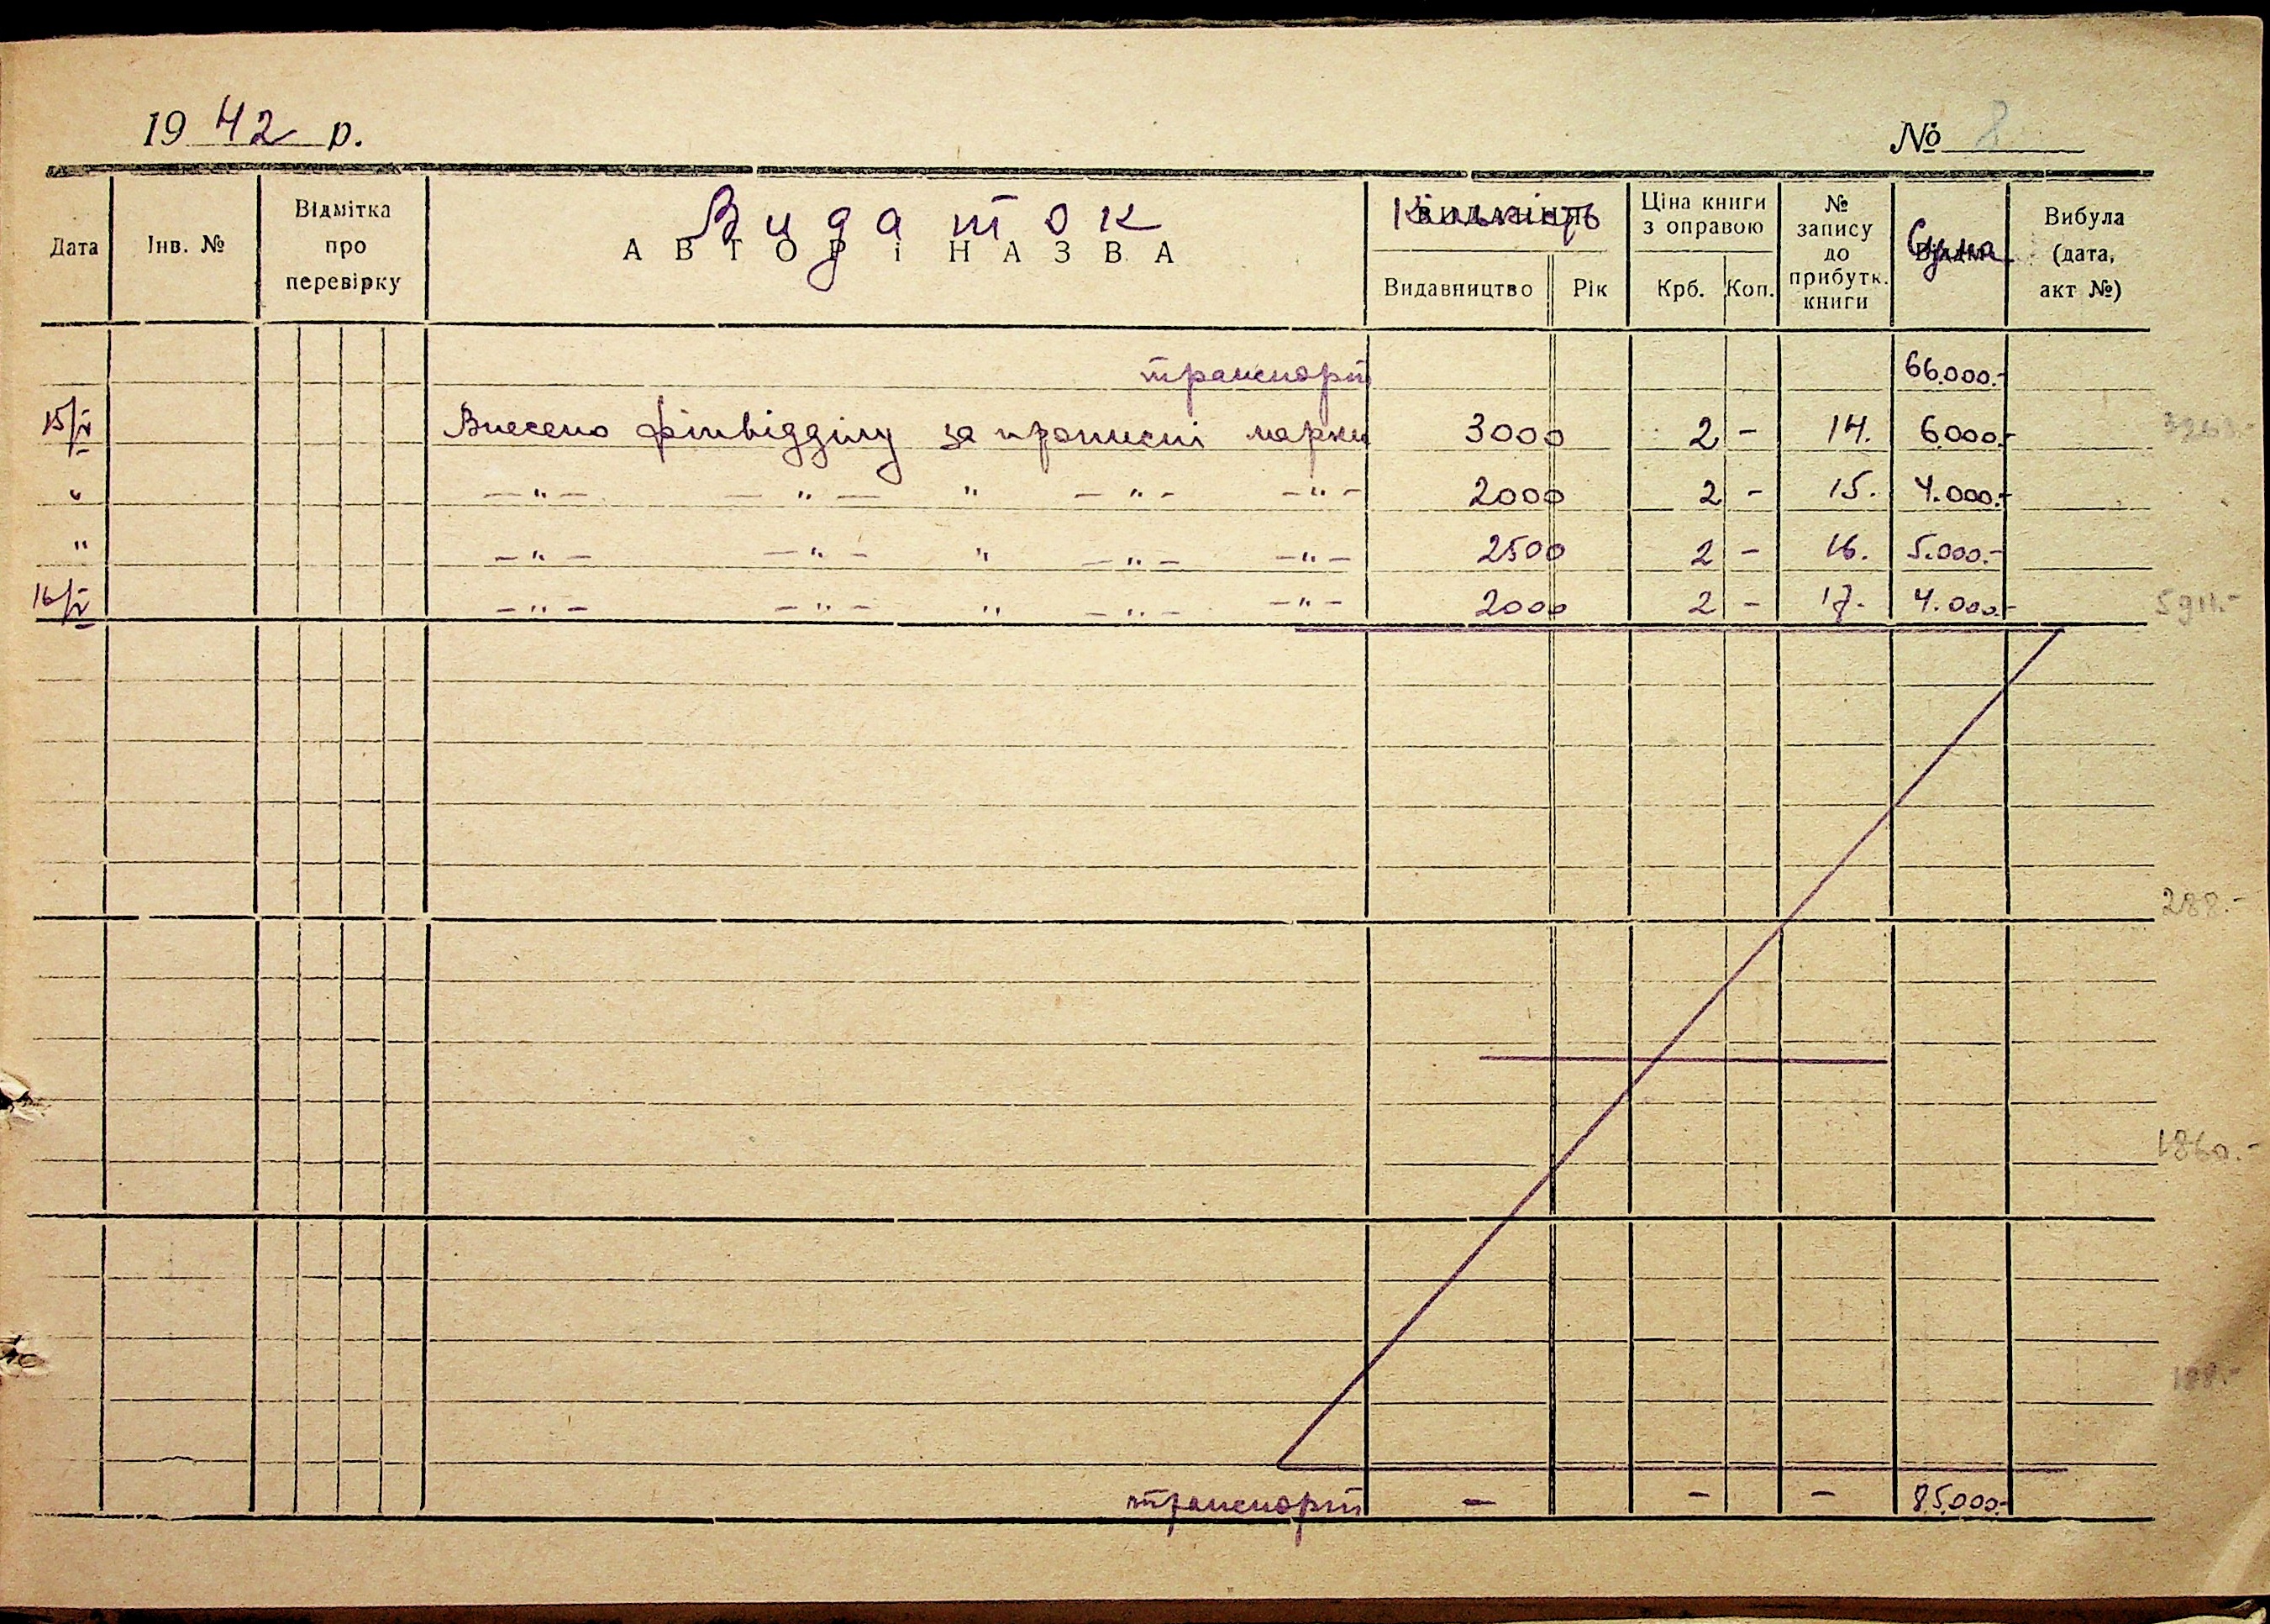 1942 р. № 8
Дата Інв. № Відмітка про перевірку АВТОР і НАЗВА Видаток Кількість Видавництво Рік Ціна книги з оправою Крб. Коп. № запису до прибутк. книги Сума Вибула (дата, акт №)
транспорт 66.000.-
15/V Внесено фінвідділу за прописні марки 3000 2 - 14. 6.000.-
" -"- -"- " -"- -"- 2000 2 - 15. 4.000.-
" -"- -"- " -"- -"- 2500 2 - 16. 5.000.-
16/V -"- -"- " -"- -"- 2000 2 - 17. 4.000.-
288.-
1860.-
транспорт - - - 85.000.-